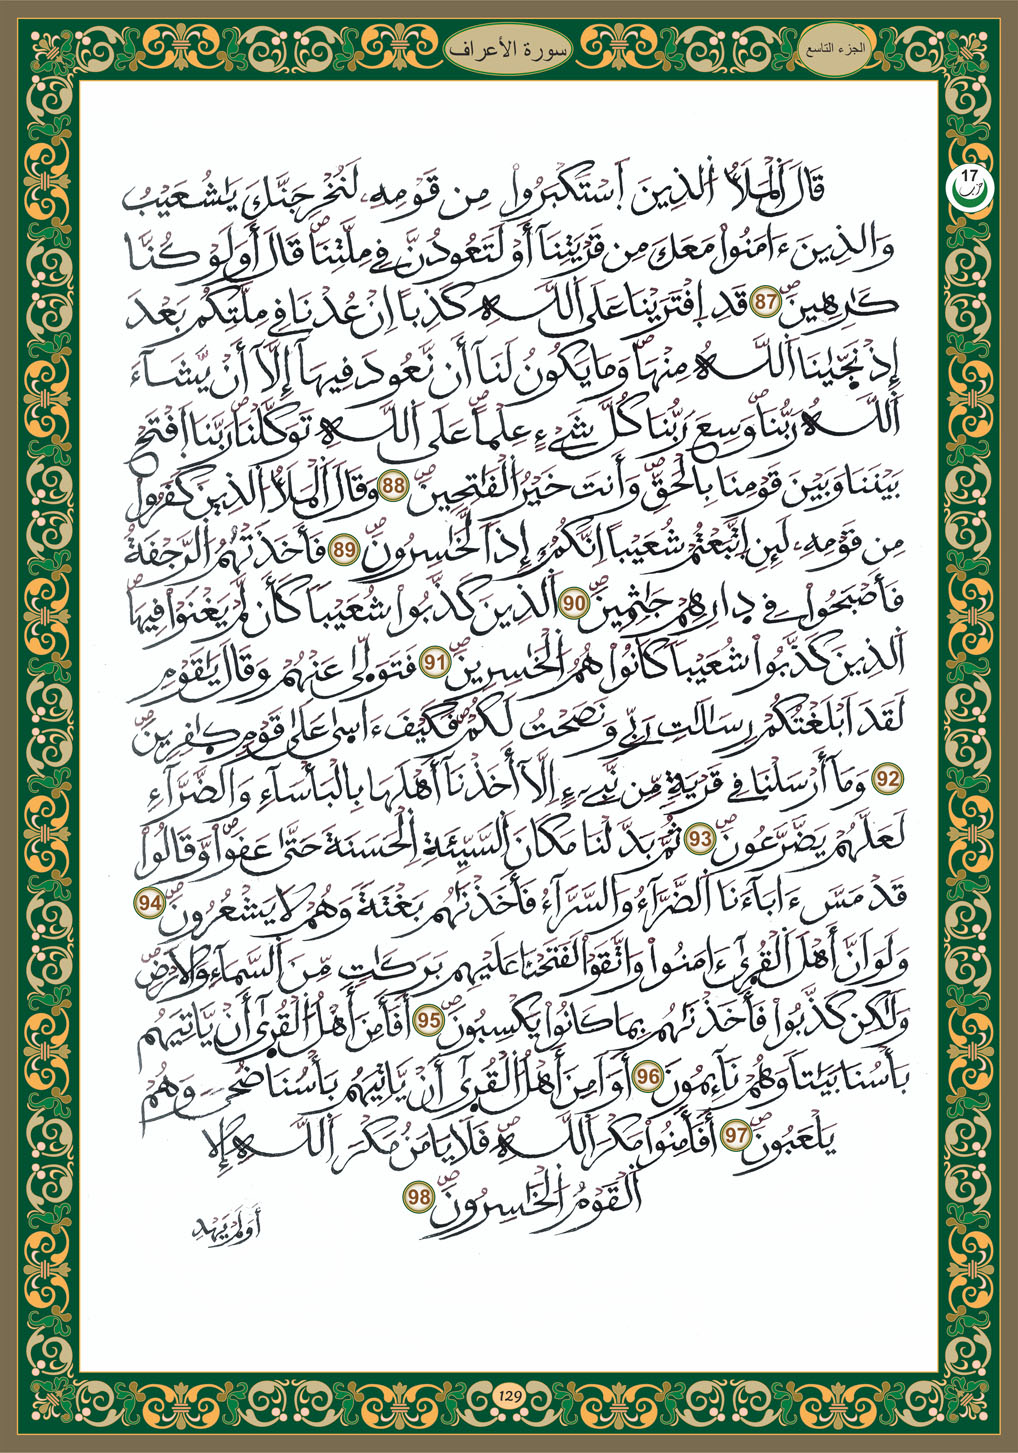 سورة الأعراف
الجزء التاسع
17
حزب
قَالَ اَ۬لْمَلَأُ اُ۬لذِينَ اَ۪سْتَكْبَرُواْ مِن قَوْمِهِۦ لَنُخْرِجَنَّكَ يَٰشُعَيْبُ
وَالذِينَ ءَامَنُواْ مَعَكَ مِن قَرْيَتِنَآ أَوْ لَتَعُودُنَّ فِے مِلَّتِنَاۖ قَالَ أَوَلَوْ كُنَّا
كَٰرِهِينَۖ 87 قَدِ اِ۪فْتَرَيْنَا عَلَي اَ۬للَّهِ كَذِباً اِنْ عُدْنَا فِے مِلَّتِكُم بَعْدَ
إِذْ نَجَّيٰنَا اَ۬للَّهُ مِنْهَاۖ وَمَا يَكُونُ لَنَآ أَن نَّعُودَ فِيهَآ إِلَّآ أَنْ يَّشَآءَ
اَ۬للَّهُ رَبُّنَاۖ وَسِعَ رَبُّنَا كُلَّ شَےْءٍ عِلْماًۖ عَلَي اَ۬للَّهِ تَوَكَّلْنَاۖ رَبَّنَا اَ۪فْتَحْ
بَيْنَنَا وَبَيْنَ قَوْمِنَا بِالْحَقِّۖ وَأَنتَ خَيْرُ اُ۬لْفَٰتِحِينَۖ 88 وَقَالَ اَ۬لْمَلَأُ اُ۬لذِينَ كَفَرُواْ
مِن قَوْمِهِۦ لَئِنِ اِ۪تَّبَعْتُمْ شُعَيْباً اِنَّكُمُۥٓ إِذاً لَّخَٰسِرُونَۖ 89 فَأَخَذَتْهُمُ اُ۬لرَّجْفَةُ
فَأَصْبَحُواْ فِے دِارِهِمْ جَٰثِمِينَۖ 90 اَ۬لذِينَ كَذَّبُواْ شُعَيْباً كَأَن لَّمْ يَغْنَوْاْ فِيهَاۖ
اَ۬لذِينَ كَذَّبُواْ شُعَيْباً كَانُواْ هُمُ اُ۬لْخَٰسِرِينَۖ 91 فَتَوَلّ۪يٰ عَنْهُمْ وَقَالَ يَٰقَوْمِ
لَقَدَ اَبْلَغْتُكُمْ رِسَٰلَٰتِ رَبِّے وَنَصَحْتُ لَكُمْۖ فَكَيْفَ ءَاس۪يٰ عَلَيٰ قَوْمٍ كٰ۪فِرِينَۖ
92 وَمَآ أَرْسَلْنَا فِے قَرْيَةٍ مِّن نَّبِےٓءٍ اِلَّآ أَخَذْنَآ أَهْلَهَا بِالْبَأْسَآءِ وَالضَّرَّآءِ
لَعَلَّهُمْ يَضَّرَّعُونَۖ 93 ثُمَّ بَدَّلْنَا مَكَانَ اَ۬لسَّيِّئَةِ اِ۬لْحَسَنَةَ حَتَّيٰ عَفَواْۖ وَّقَالُواْ
قَدْ مَسَّ ءَابَآءَنَا اَ۬لضَّرَّآءُ وَالسَّرَّآءُ فَأَخَذْنَٰهُم بَغْتَةً وَهُمْ لَا يَشْعُرُونَۖ 94
وَلَوَ اَنَّ أَهْلَ اَ۬لْقُر۪يٰٓ ءَامَنُواْ وَاتَّقَوْاْ لَفَتَحْنَا عَلَيْهِم بَرَكَٰتٍ مِّنَ اَ۬لسَّمَآءِ وَالَارْضِۖ
وَلَٰكِن كَذَّبُواْ فَأَخَذْنَٰهُم بِمَا كَانُواْ يَكْسِبُونَۖ 95 أَفَأَمِنَ أَهْلُ اُ۬لْقُر۪يٰٓ أَنْ يَّاتِيَهُم
بَأْسُنَا بَيَٰتاً وَهُمْ نَآئِمُونَۖ 96 أَوَ اَمِنَ أَهْلُ اُ۬لْقُر۪يٰٓ أَنْ يَّاتِيَهُم بَأْسُنَا ضُحيً وَهُمْ
يَلْعَبُونَۖ 97 أَفَأَمِنُواْ مَكْرَ اَ۬للَّهِۖ فَلَا يَامَنُ مَكْرَ اَ۬للَّهِ إِلَّا
اَ۬لْقَوْمُ اُ۬لْخَٰسِرُونَۖ 98
أَوَلَمْ يَهْدِ
129